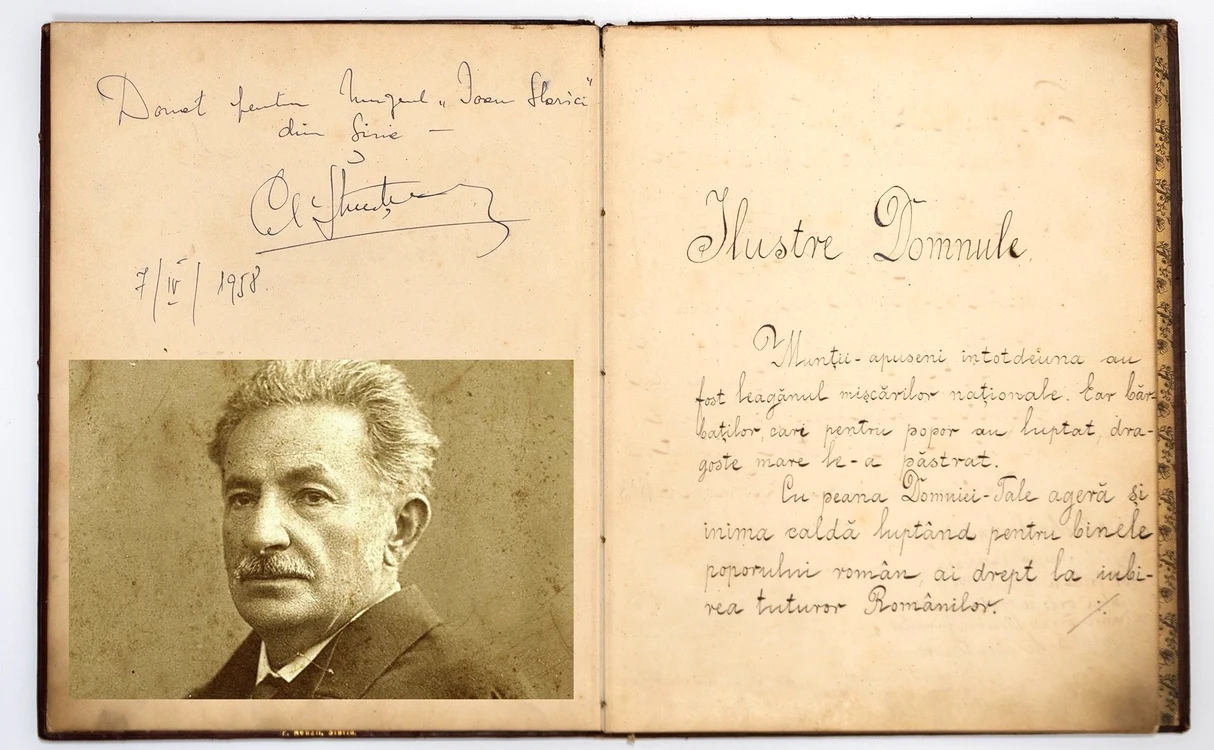 Donat pentru Muzeul „Ioan Slavici"
din Șiria —
7/IV/1958.
Ilustre Domnule.
Munții-apuseni intotdeiuna au
fost leagănul mișcărilor naționale. Ear băr-
baților, cari pentru popor au luptat, dra-
goste mare le-a păstrat.
Cu peana Domniei-Tale ageră și
inima caldă luptând pentru binele
poporului român, ai drept la iubi-
rea tuturor Românilor.
./.